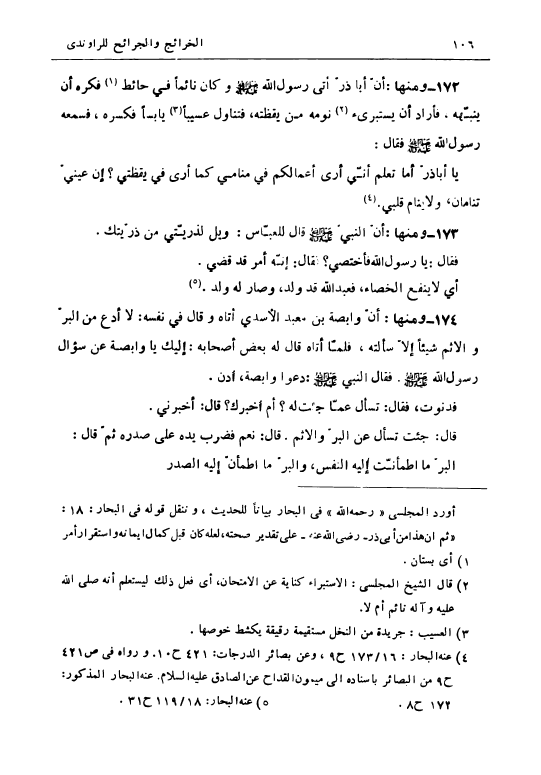 ١٠٦ الخرائج والجرائح للراوندى
١٧٢ـ ومنها : أنّ أباذرّ أتى رسول الله ﷺ و كان نائماً في حائط (١) فكره أن
ينبّهه . فأراد أن يستبرىء (٢) نومه من يقظته، فتناول عسيباً(٣) يابساً فكسره ، فسمعه
رسول الله ﷺ فقال :
يا أباذرّ أما تعلم أنّي أرى أعمالكم في منامي كما أرى في يقظتي ؟ إن عينيّ
تنامان، ولاينام قلبي.(٤)
١٧٣ـ ومنها : أنّ النبيّ ﷺ قال للعبّاس : ويل لذريّتي من ذرّيتك .
فقال : يا رسول الله فأختصي؟ قال: إنّه أمر قد قضي .
أي لاينفع الخصاء، فعبدالله قد ولد، وصار له ولد .(٥)
١٧٤ـ ومنها : أنّ وابصة بن معبد الأسدي أتاه و قال في نفسه: لا أدع من البرّ
و الاثم شيئاً إلاّ سألته ، فلمّا أتاه قال له بعض أصحابه : إليك يا وابصة عن سؤال
رسول الله ﷺ . فقال النبي ﷺ : دعوا وابصة، أدن .
فدنوت، فقال: تسأل عمّا جئت له ؟ أم أخبرك؟ قال: أخبرني .
قال: جئت تسأل عن البرّ والاثم . قال: نعم فضرب يده على صدره ثمّ قال :
البرّ ما اطمأنّت إليه النفس، والبرّ ما اطمأنّ إليه الصدر
أورد المجلسي « رحمه الله » في البحار بياناً للحديث ، و ننقل قوله في البحار : ١٨ :
«ثم ان هذا من أبي ذر- رضي الله عنه- على تقدير صحته، لعله كان قبل كمال ايمانه واستقرار أمر
١) أى بستان .
٢) قال الشيخ المجلسي : الاستبراء كناية عن الامتحان، أى فعل ذلك ليستعلم أنه صلى الله
عليه وآله نائم أم لا.
٣) العسيب : جريدة من النخل مستقيمة رقيقة يكشط خوصها .
٤) عنه البحار : ١٧٣/١٦ ح٩ ، وعن بصائر الدرجات: ٤٢١ ح١٠. و رواه في ص٤٢١
ح٩ من البصائر باسناده الى ميمون القداح عن الصادق عليه السلام. عنه البحار المذكور:
١٧٢ ح٨. ٥) عنه البحار: ١١٩/١٨ ح٣١.